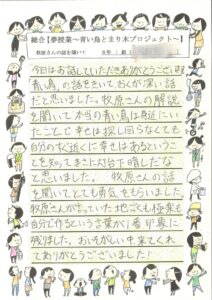 総合【夢授業〜青い鳥とまり木プロジェクト〜】
牧原さんの話を聞いて
今日はお話していただきありがとうございます
青い鳥の話をきいておくが深い話
だと思いました。牧原さんの解説
を聞いて本当の青い鳥は身近にい
たことで幸せは探し回らなくても
自分のすぐ近くに幸せはあるというこ
とを知ってまさに灯台下暗しだな
と思いました。牧原さんの話
を聞いてとても勇気をもらいました
牧原さんが言っていた地ごくも極楽も
自分で作るという言葉が1番印象に
残りました。おいそがしい中来てくれ
てありがとうございました!